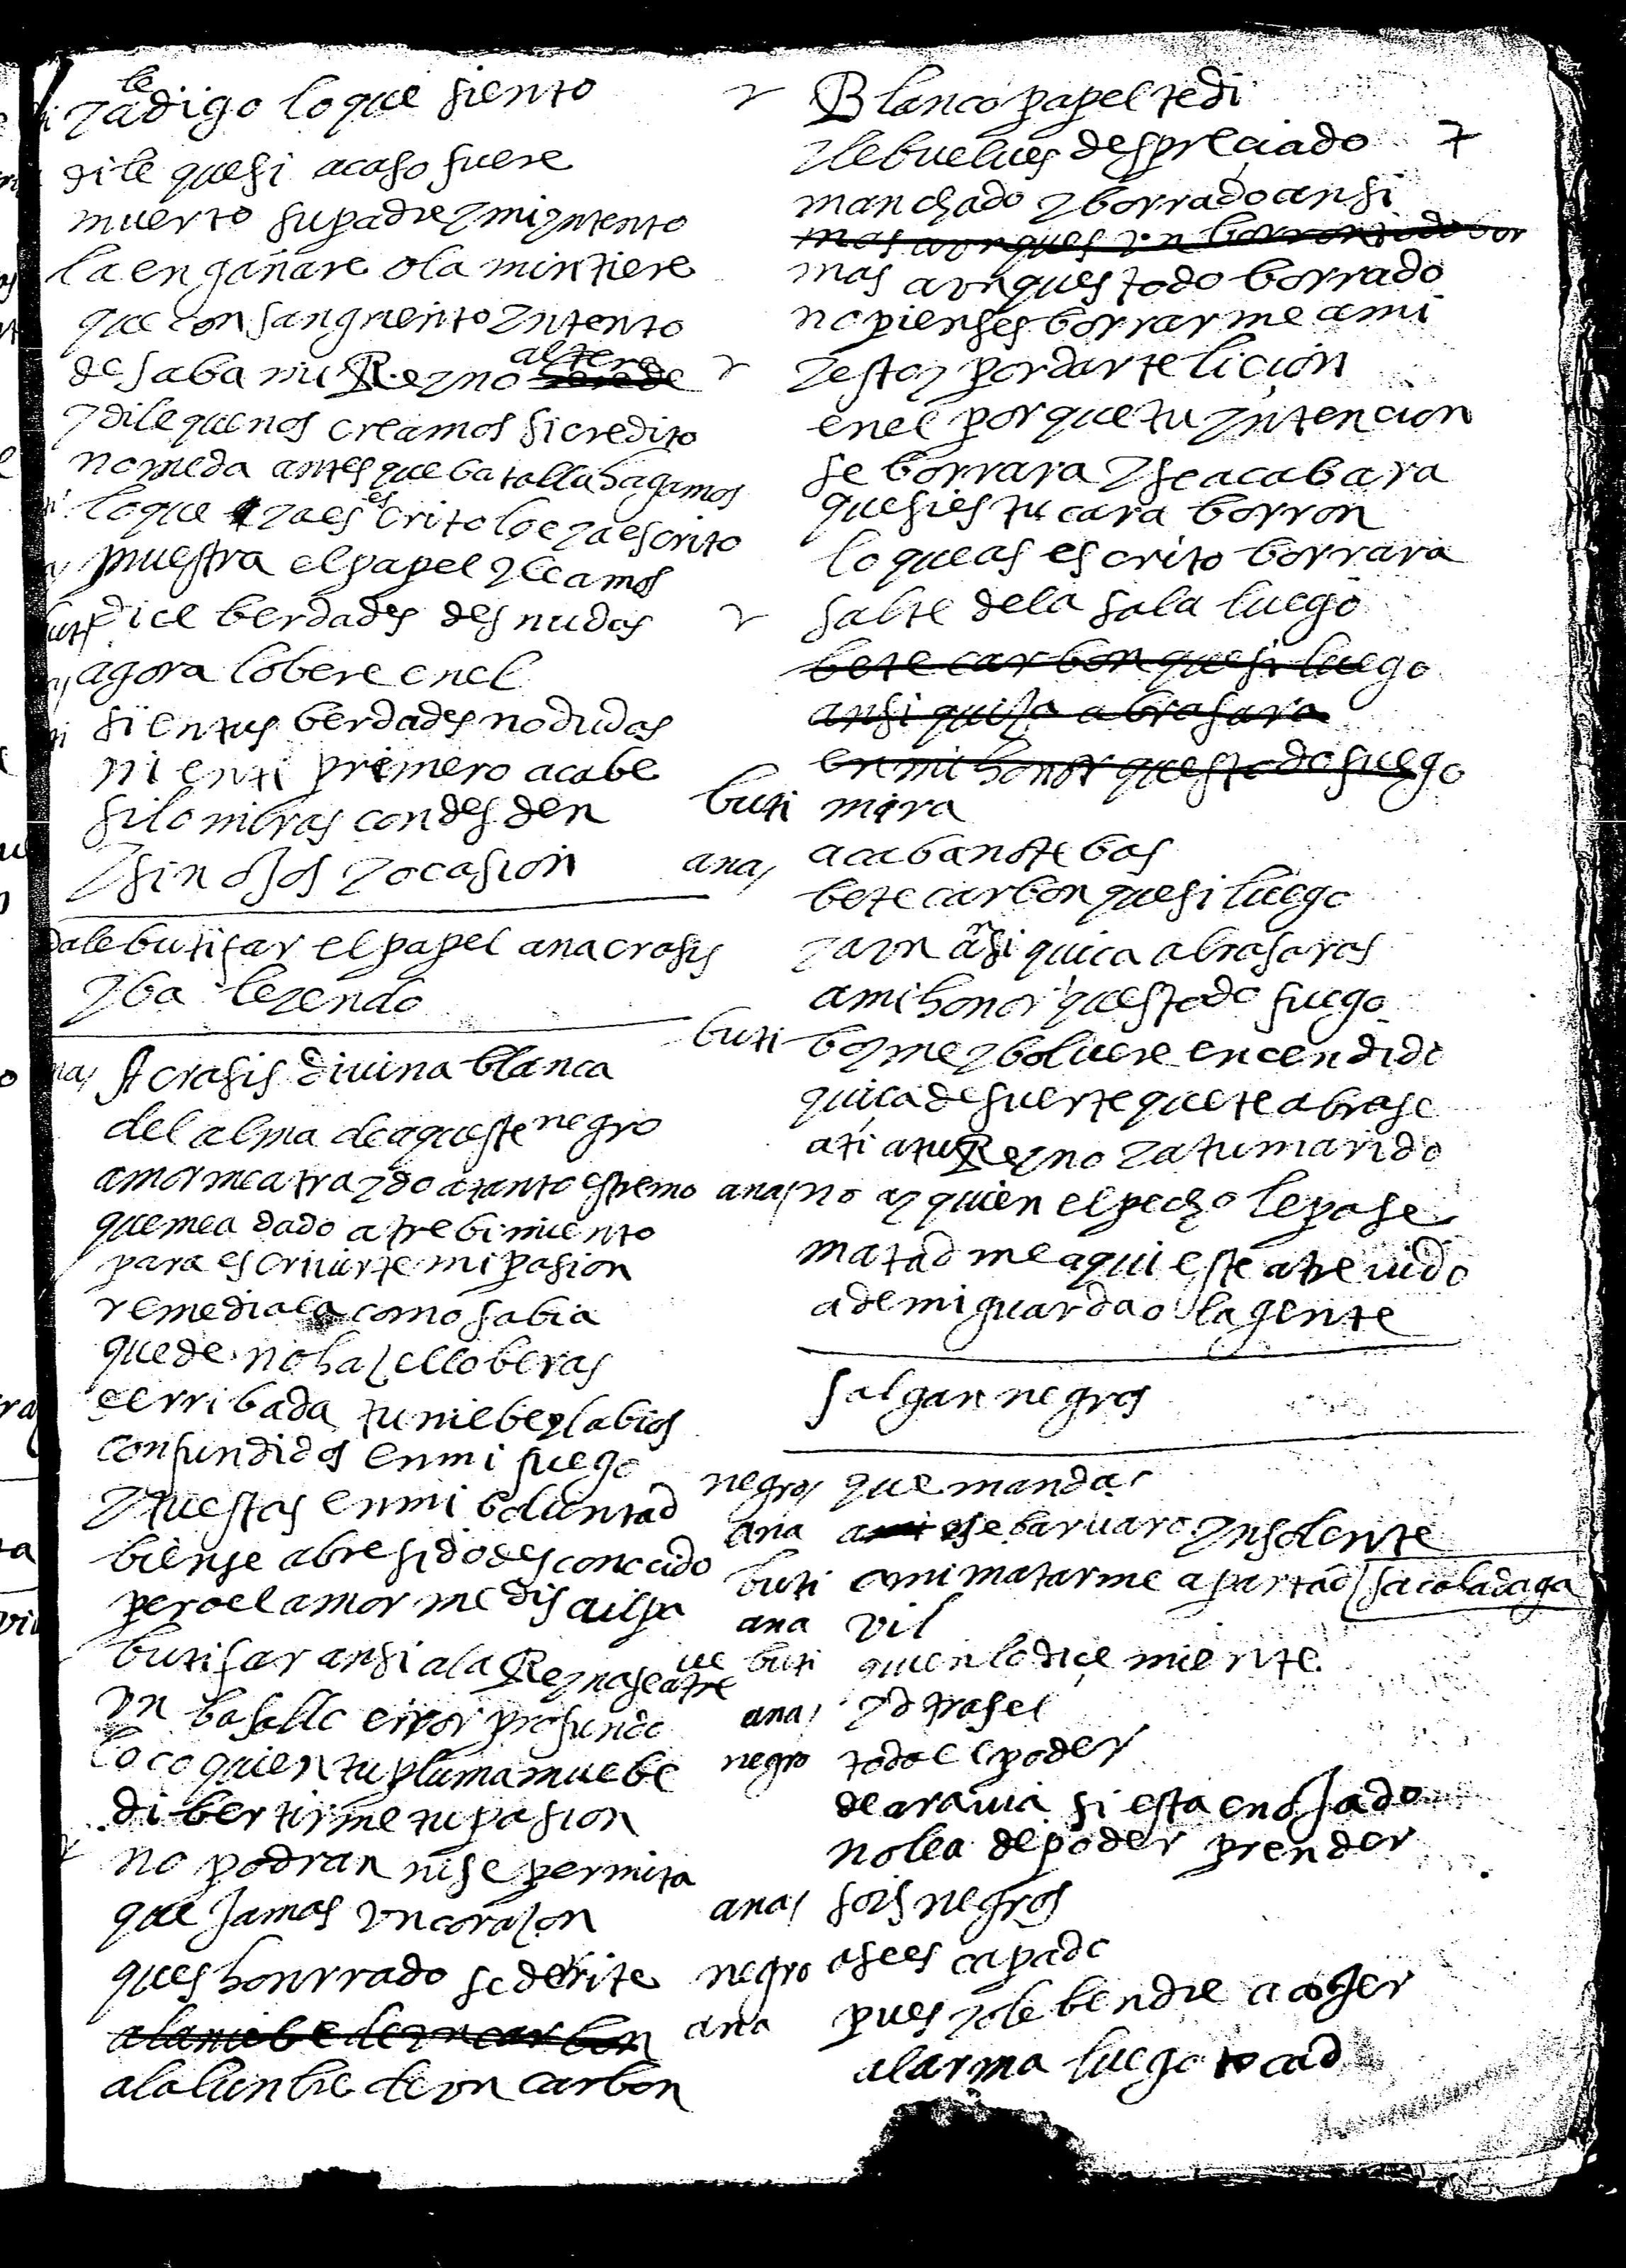 le
yadigo lo que siento
dile que si acaso fuere
muerto su padre y mi yntento
la engañare o la mintiere
que con sangriento yntento
de saba mi Reyno altere
y dile que nos creamos si credito
no me da antes que batalla hagamos
lo que ya es escrito lo e ya escrito
muestra el papel y leamos
dice berdades desnudas
agora lo bere en el
si en tus berdades no dudas
ni en ti primero acabe
si lo miras con desden
y sin ojos y ocasion
dale butifar el papel anacrasis
y ba leyendo
Acrasis diuina blanca
del alma de aqueste negro
amor me a traydo a tanto estremo
que me a dado atrebimiento
para escriuirte mi pasion
remediala como sabia
que de no hazello beras
derribada tu niebe y labios
confundidos en mi fuego
y puestas en mi boluntad
bien se abre sido desconocido
pero el amor me disculpa
butifar ansi a la Reyna se atreue
un basallo error profundo
loco quien tu pluma muebe
dibertirme tu pasion
no podran ni se permita
que jamas un corazon
ques honrrado se derite
a la niebe de un carbon
a la lunbre de un carbon
Blanco papel te di
7
y le buelues despreciado
manchado y borrado ansi
mas aunques un borron todo bor
mas aunques todo borrado
no pienses borrarme a mi
y estoy por darte licion
en el porque tu yntencion
se borrara y se acabara
que si es tu cara borron
lo que as escrito borrara
salte de la sala luego
bete carbon que si luego
ansi quiza abrasara
en mi honor questodo fuego
buti mira
ana acabanste bas
bete carbon que si luego
y aun ansi quiça abrasaras
a mi honor questodo fuego
buti boyme y boluere encendido
quiça de suerte que te abrase
a ti a tu Reyno y a tu marido
ana no ay quien el pecho le pase
matadme aqui este atreuido
a de mi guarda o la gente
salgan negros
negros que mandas
ana a ese baruaro ynsolente
buti a mi matarme apartad saca la daga
ana vil
buti quien lo dice miente
ana yd tras el
negro todo el poder
de arauia si esta enojado
no lea de poder prender
ana sois negros
negro ase escapado
ana pues yo le bendre a coger
al arma luego tocad